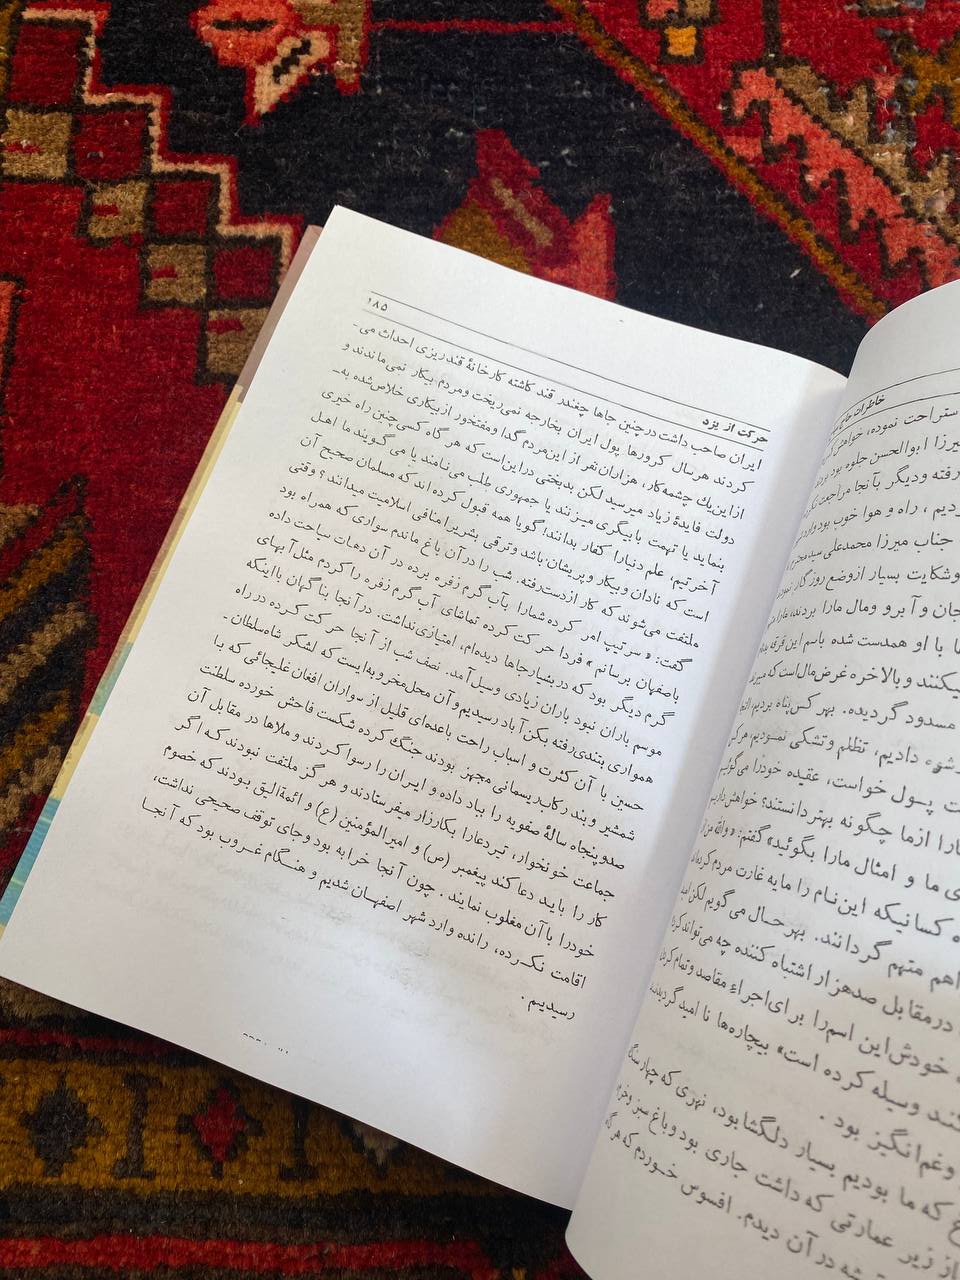 خاطرات حاج
ستراحت نموده، خواهش
یرزا ابوالحسن جلوه بود
رفته و دیگر بآنجا مراجعت
دیم، راه و هوا خوب بود
جناب میرزا محمدعلی سید
وشکایت بسیار ازوضع روزگار
جان و آبرو ومال مارا بردند،
ها با او همدست شده باسم این فرقه
یکنند و بالاخره غرض مال است که
مسدود گردیده. بهر کس پناه بردیم،
رشوء دادیم، تظلم وتشکی نمودیم،
ت پسول خواست، عقیده خودرا میگوئیم
ارا ازما چگونه بهتر دانیستند؟ خواهش داریم
ی ما و امثال مارا بگوئید» گفتم: «والله من
ه کسانیکه این نام را مایه غارت مردم
اهم متهم گردانند. بهر حال می گویم لکن
درمقابل صدهزار اشتباه کننده چه می تواند
خودش این اسم را برای اجراء مقاصد وتمام
کند وسیله کرده است» بیچاره ها نا امید گردیدند
وغم انگیز بود.
غ که ما بودیم بسیار دلگشا بود، نهری که چهار سنگ
از زیر عمارتی که داشت جاری بود و باغ سبز وخرم
شه در آن دیدم. افسوس خوردم که هرگاه
حرکت از یزد
۱۸۵
ایران صاحب داشت درچنین جاها چغندر قند کاشته کارخانهٔ قندریزی احداث می‌-
کردند هرسال کرورها پول ایران بخارجه نمی‌ریخت ومردم بیکار نمی‌ماندند و
ازاین یك چشمه کار، هزاران نفر از این مردم گدا ومفتخور ازبیکاری خلاص‌شده به‌-
دولت فایدهٔ زیاد میرسید لکن بدبختی دراین‌است که هر گاه کسی چنین راه خیری
بنماید یا تهمت بابیگری میزنند یا جمهوری طلب می‌نامند یا می گویند ما اهل
آخرتیم، علم دنیارا کفار بدانند! گویا همه قبول کرده‌اند که مسلمان صحیح آن
است که نادان وبیکار وپریشان باشد وترقی بشر یرا منافی اسلامیت میدانند؟ وقتی
ملتفت می‌شوند که کار ازدست‌رفته. شب را در آن باغ ماندم سواری که همراه بود
گفت: «سرتیپ امر کرده شمارا بآب گرم زفره برده در آن دهات سیاحت داده
باصفهان برسانم» فردا حرکت کرده تماشای آب گرم زفره را کردم مثل آبهای
گرم دیگر بود که در بسیار جاها دیده‌ام، امتیازی نداشت. در آنجا بنا گهان بااینکه
موسم باران نبود باران زیادی وسیل آمد. نصف شب از آنجا حرکت کرده در راه
همواری بندی‌رفته بگن آباد رسیدیم و آن محل مخروبه‌ایست که لشکر شاه‌سلطان‌-
حسین با آن کثرت و اسباب راحت باعده‌ای قلیل از سواران افغان غلیجائی که با
شمشیر و بند رکاب ریسمانی مجهز بودند جنگ کرده شکست فاحش خورده سلطنت
صدوپنجاه سالهٔ صفویه را بباد داده و ایران را رسوا کردند و ملاها در مقابل آن
جماعت خونخوار، تیر دعارا بکارزار میفرستادند و هر گز ملتفت نبودند که اگر
کار را باید دعا کند پیغمبر (ص) و امیرالمؤمنین (ع) و ائمهٔ الیق بودند که خصوم
خودرا با آن مغلوب نمایند. چون آنجا خرابه بود وجای توقف صحیحی نداشت،
اقامت نکرده، رانده وارد شهر اصفهان شدیم و هنگام غروب بود که آنجا
رسیدیم.